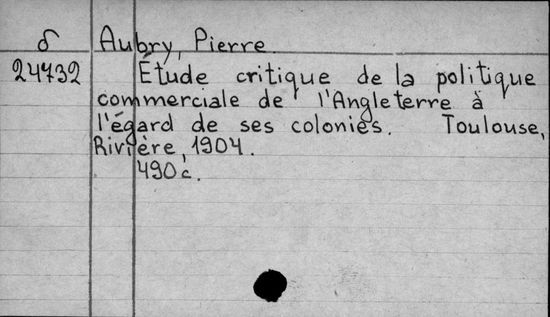 δ Aubry, Pierre.
24732 Étude critique de la politique
commerciale de l'Angleterre à
l'égard de ses colonies. Toulouse,
Rivière, 1904.
490 c.